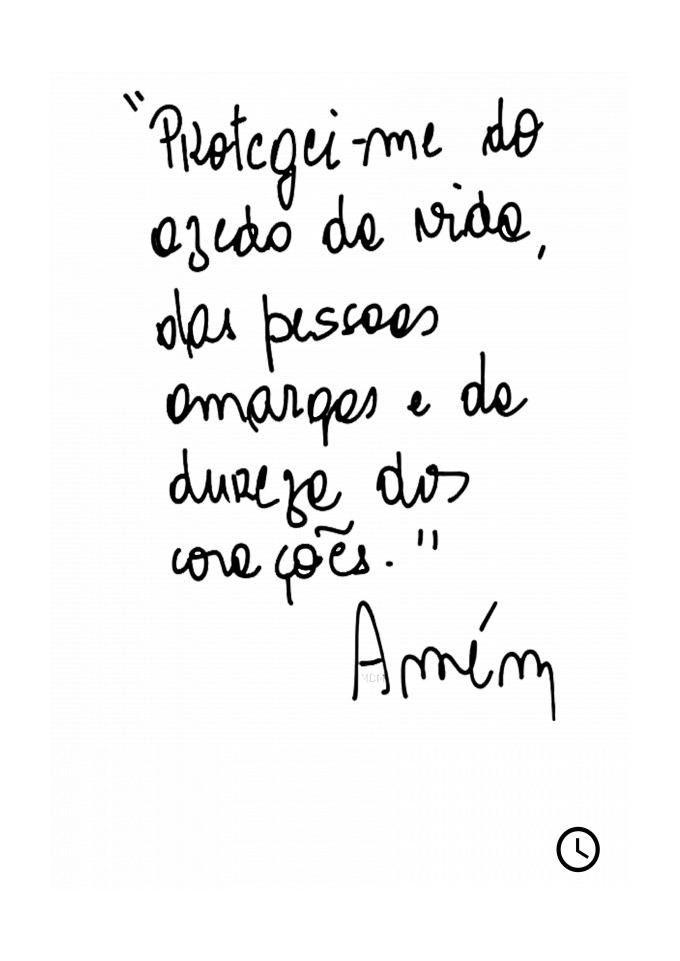 "Protegei-me do
azedo da vida,
das pessoas
amargas e da
dureza dos
corações."
Amém